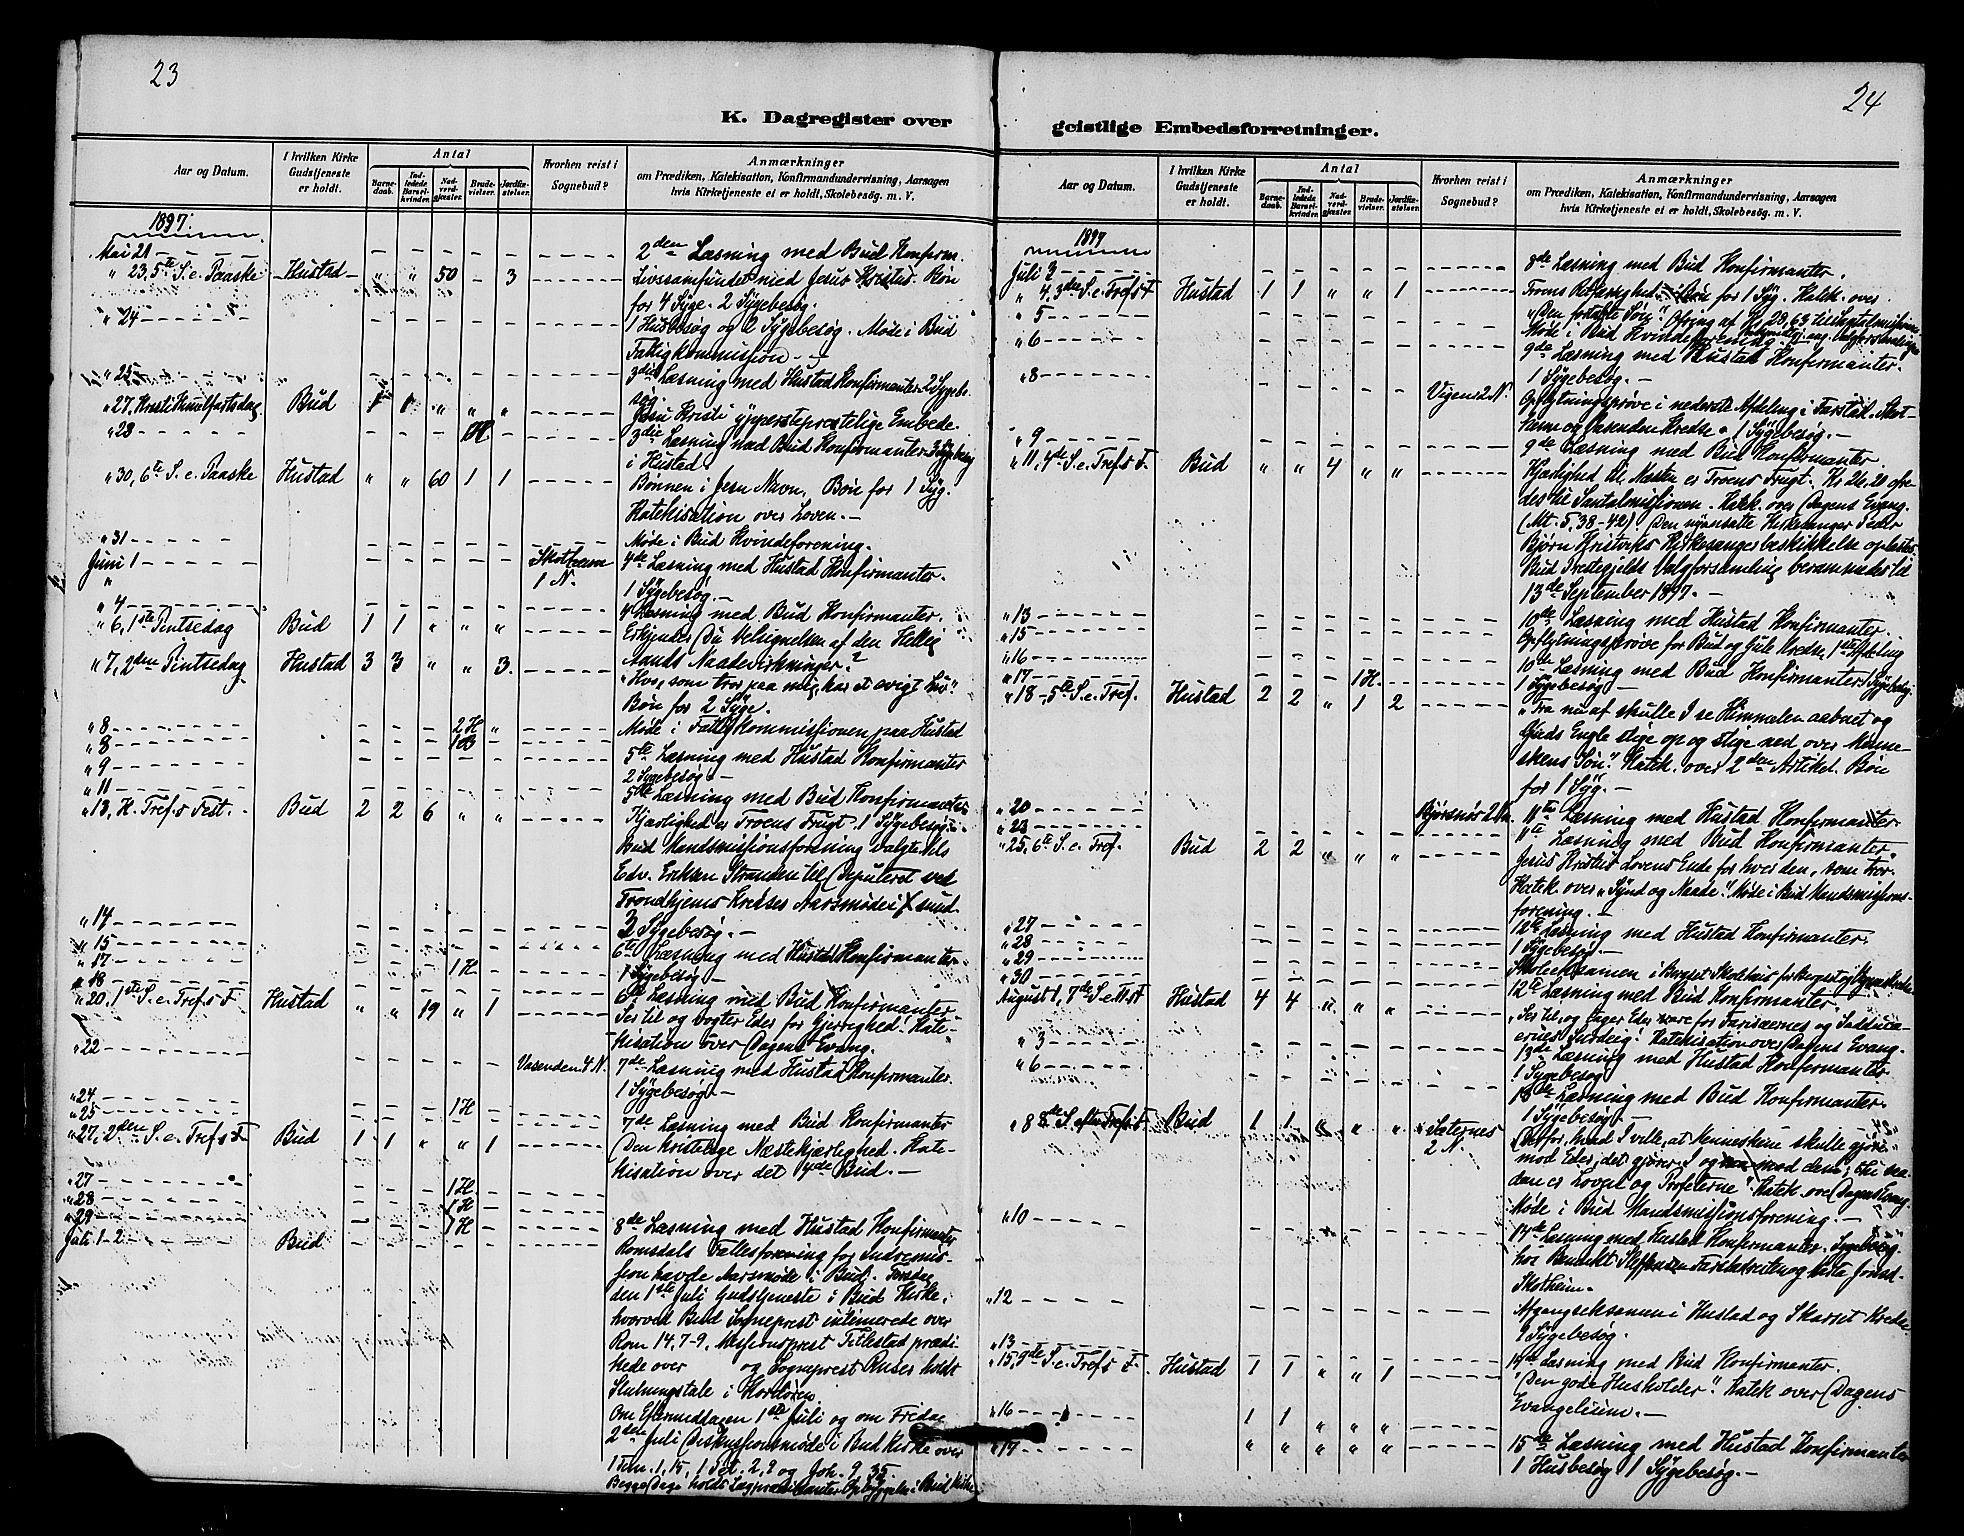 23
24
K. Dagregister over
geistlige Embedsforretninger.
Aar og Datum.
I hvilken Kirke Gudstjeneste er holdt.
Antal
Barne-daab.
Ind-ledede Barsel-kvinder.
Nad-verd-gjæster.
Brude-vielser.
Jordfæ-stelser.
Hvorhen reist i Sognebud?
Anmærkninger
om Prædiken, Katekisation, Konfirmandundervisning, Aarsagen
hvis Kirketjeneste ei er holdt, Skolebesøg. m. V.
1897:
Mai 21 2den Læsning med Bud Konfirm.
" 23. 5te S. e. Paaske Hustad " " 50 - 3 Livssamfundet med Jesus Kristus. Bøn
for 4 Syge. 2 Sygebesøg.
" 24 1 Husbesøg og 2 Sygebesøg. Møde i Bud
Fattigkommission
" 25 3die Læsning med Hustad Konfirmanter 2 Sygebe-
søg.
" 27, Kristi Himmelfartsdag Bud 1 1 " " " Jesu Kristi ypperstepræstelige Embede.
" 28 1 H. 3die Læsning med Bud Konfirmanter 3 Sygebesøg
i Hustad.
" 30, 6te S. e. Paaske Hustad " " 60 1 1 Bønnen i Jesu Navn. Bøn for 1 Syg.
Katekisation over Loven.
" 31 Møde i Bud Kvindeforening.
Juni 1 Skotheim 4de Læsning med Hustad Konfirmanter.
" 1 N. 1 Sygebesøg.
" 4 4 Læsning med Bud Konfirmanter.
" 6, 1ste Pintsedag Bud 1 1 " " " Erkjender Du Velsignelsen af den Hellig
" 7, 2den Pintsedag Hustad 3 3 " " 3. Aands Naadevirkninger?
"Hver, som tror paa mig, har et evigt Liv".
Bøn for 2 Syge.
" 8 2 H " Møde i Fattigkommissionen paa Hustad
" 8 1 B
" 9 5te Læsning med Hustad Konfirmanter
2 Sygebesøg.
" 11 5te Læsning med Bud Konfirmanter
" 13, H. Tref.s Fest. Bud 2 2 6 " " Kjærlighed er Troens Frugt. 1 Sygebesøg.
Bud Mandsmissionsforening valgte Nils
Edv. Eriksen Stranden til Deputeret ved
Trondhjems Kredses Aarsmøde i Xsund.
" 14 3 Sygebesøg.
" 15 6te Læsning med Hustad Konfirmanter
" 17 1 H. 1 Sygebesøg
" 18 6te Læsning med Bud Konfirmanter
" 20, 1ste S. e. Tref.s F. Hustad " " 19 " 1 Ser til og vogter Eder for Gjerrighed! Kate-
kisation over Dagens Evang.
" 22 Vasenden 4 N. 7de Læsning med Hustad Konfirmanter.
1 Sygebesøg
" 24
" 25 1 H 7de Læsning med Bud Konfirmanter
" 27, 2den S. e. Tref.s F. Bud 1 1 " " 1 Den kristelige Næstekjærlighed. Kate-
kisation over det 4de Bud.
" 27 1 H.
" 28 1 H
" 29 1 H 8de Læsning med Hustad Konfirmanter
Juli 1-2 Bud Romsdals Fællesforening for Indremis-
sion havde Aarsmøde i Bud. Torsdag
den 1ste Juli Gudstjeneste i Bud Kirke,
hvorved Bud Sogneprest intimerede over
Rom 14, 7-9, Missionsprest Titlestad prædi-
kede over og Sogneprest holdt
Slutningstale i Kordøren
Om Eftermiddagen 1ste Juli og om Fredag
2den Juli Diskussionsmøde i Bud Kirke over
1 Tim. 1, 15, 1 Pet. 2, 9 og Joh. 9, 35.
Begge Dage holdt Lægprædikanter Opbyggelse i Bud Kirke
Aar og Datum.
I hvilken Kirke Gudstjeneste er holdt.
Antal
Barne-daab.
Ind-ledede Barsel-kvinder.
Nad-verd-gjæster.
Brude-vielser.
Jordfæ-stelser.
Hvorhen reist i Sognebud?
Anmærkninger
om Prædiken, Katekisation, Konfirmandundervisning, Aarsagen
hvis Kirketjeneste ei er holdt, Skolebesøg, m. V.
1897
Juli 2 8de Læsning med Bud Konfirmanter.
" 4, 3die S. e. Tref.s F. Hustad 1 1 " " 1 Troens Retfærdighed. Bøn for 1 Syg. Katek. over
" 5 "Den fortabte Søn". Ofring af Kr. 28,63 til Santalmissionen
" 6 Møde i Bud Kvindeforening
9de Læsning med Hustad Konfirmanter.
" 8 1 Sygebesøg.
Vigen 2 N. Opflytningsprøve i nederste Afdeling i Farstad, Skot-
heim og Vasenden Kredse. 1 Sygebesøg.
" 9 9de Læsning med Bud Konfirmanter
" 11, 4de S. e. Tref.s F. Bud " " 4 " " Kjærlighed til Næsten er Troens Frugt. Kr. 26.20 ofre-
des til Santalmissionen. Katek. over Dagens Evang.
(Mt. 5, 38-42) Den nyansatte Kirkesanger Peder
Bjørn Kristviks Kirkesangerbeskikkelse oplæstes.
Bud Prestegjelds Valgforsamling berammedes til
13de September 1897.
" 13 10de Læsning med Hustad Konfirmanter.
" 15 Opflytningsprøve for Bud og Gule Kredse, 1ste Afdeling
" 16 10de Læsning med Bud Konfirmanter. 1 Sygebesøg.
" 17 1 H. 1 Sygebesøg
" 18, 5te S. e. Tref. Hustad 2 2 " 1 2 "Fra nu af skulle I se Himmelen aabnet og
Guds Engle stige op og stige ned over Menne-
skens Søn". Katek. over 2den Artikel. Bøn
for 1 Syg.
" 20 Bjørsnøs 2 N. 11te Læsning med Hustad Konfirmanter.
" 23 11te Læsning med Bud Konfirmanter.
" 25, 6te S. e. Tref. Bud 2 2 " " " Jesus Kristus Lovens Ende for hver den, som tror.
Katek over "Synd og Naade". Møde i Bud Mandsmissions-
forening.
" 27 12te Læsning med Hustad Konfirmanter.
" 28 1 Sygebesøg.
" 29 Skoleeksamen i
" 30 12te Læsning med Bud Konfirmanter.
August 1, 7de S. e. Tref. Hustad 4 4 " " " "Ser til, og tager Eder vare for Farisæernes og Sadducæ-
ernes Surdeig". Katekisation over Dagens Evang.
" 3 13de Læsning med Hustad Konfirmanter
1 Sygebesøg
" 6 13de Læsning med Bud Konfirmanter.
1 Sygebesøg
" 8 8de S. efter Tref.s F. Bud 1 1 " " " Sæternes 2 N. Derfor, hvad I ville, at Menneskene skulle gjøre
mod Eder, det gjører I og mod dem; thi saa-
dan er Loven og Profeterne". Katek. over Dagens Evang.
Møde i Bud Mandsmissionsforening.
" 10 14de Læsning med Hustad Konfirmanter. Sygebesøg
hos Benedikt Steffensen og
Skotheim.
" 12 Afgangseksamen i Hustad og Skarset Kredse
1 Sygebesøg.
" 13 14de Læsning med Bud Konfirmanter.
" 15, 9de S. e. Tref.s F. Hustad 1 1 " " 1 "Den gode Husholder". Katek over Dagens
Evangelium.
" 16 1 1 " " "
" 17 " " " " " 15de Læsning med Hustad Konfirmanter
1 Husbesøg 1 Sygebesøg.